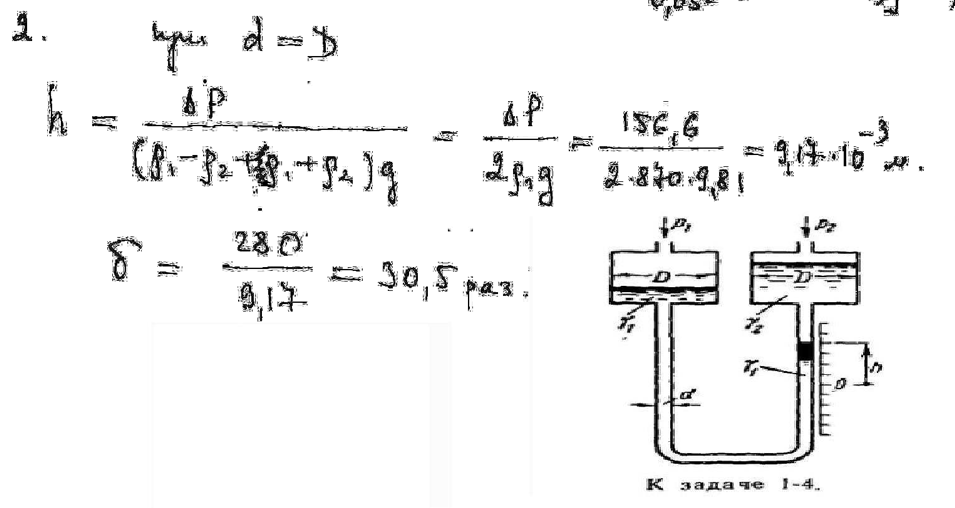 2. при d = D
h = ΔP / (ρ₁ - ρ₂ + ρ₁ + ρ₂)g = ΔP / 2ρ₁g = 156,6 / 2·870·9,81 = 9,17·10⁻³ м.
δ = 280 / 9,17 = 30,5 раз.
p₁ p₂
D D
γ₁ γ₂
γ₁ 0 h
d
К задаче 1-4.